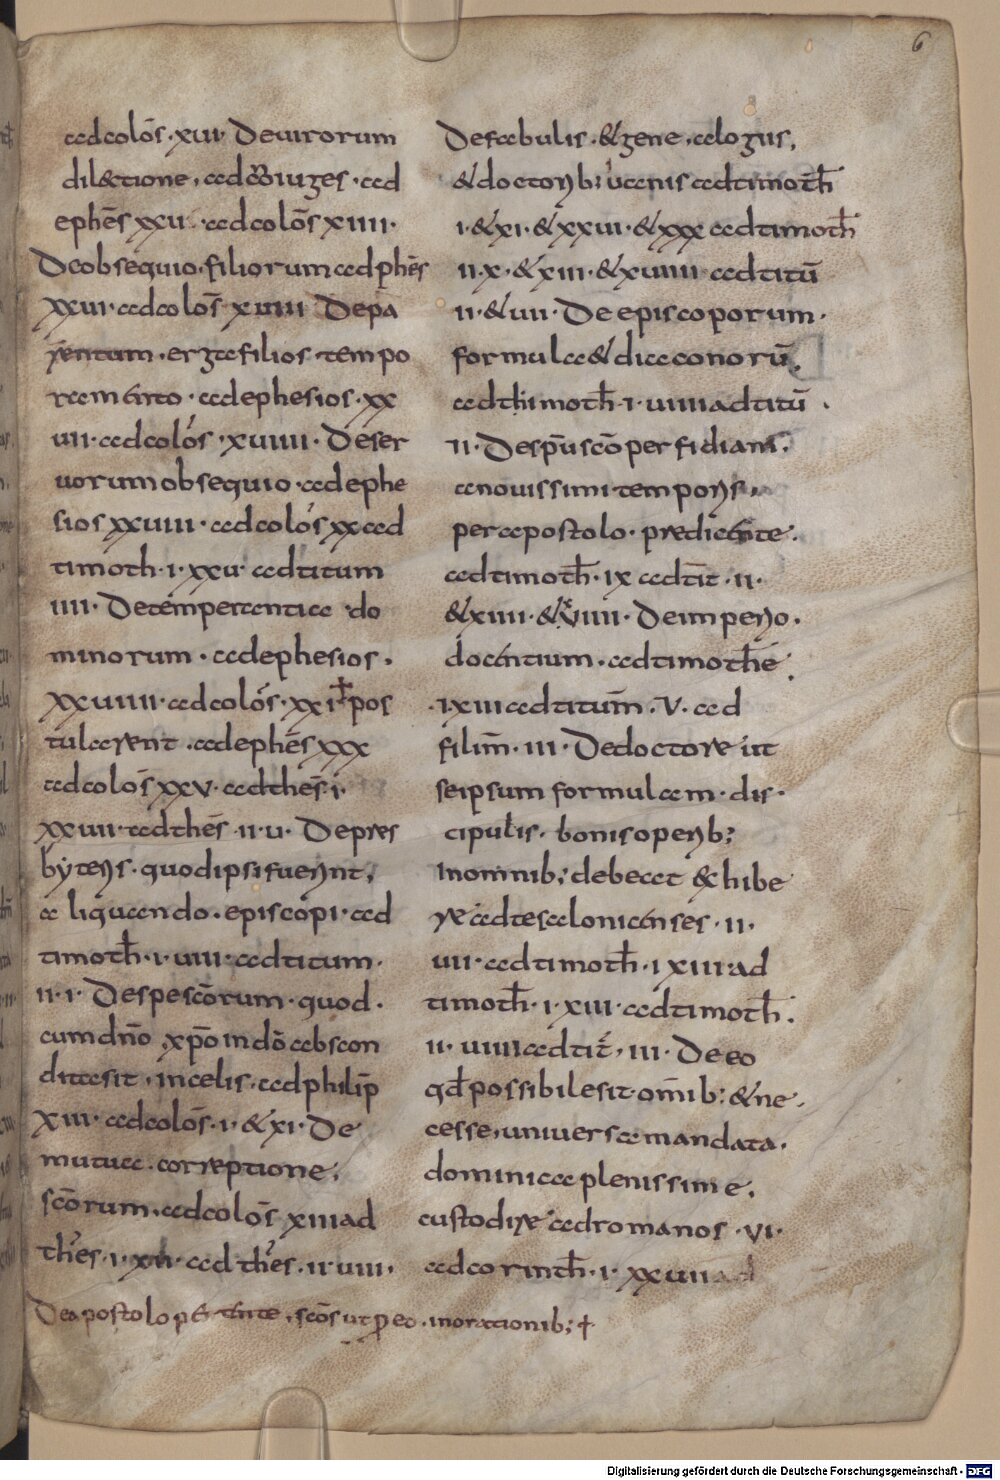 6
adcolōs·xvii· Deuirorum
dilectione, adcōiuges·ad
ephēs xxvi·adcolōs xiiii·
Deobsequio·filiorum adphēs
xxvii·adcolōs xviii Depa
rentum·ergafilios·tempo
ramento·adephesios·xx
viii·adcolos·xviiii·Deser
uorumobsequio·adephe
sios xxviiii·adcolos xx ad
timoth·i·xxv·adtitum
iiii·Detemperantia do
minorum·adephesios·
xxviiii·adcolōs·xxi pos
tularent·adephēs xxx
adcolōs xxv·adthēs·i·
xxiiii·adthēs·ii·v· Depres
byteris·quodipsifuerint;
a liquando·episcopi·ad
timoth̄·i·viiii·adtitum·
ii·i· Despescōrum·quod·
cumdn̄o xp̄o indō abscon
ditasit, incelis·adphilip̄
xiii·adcolōs·i·&xi· De
mutua·correptione,
scōrum·adcolōs xiii ad
thes·i·xxii·ad thes·ii·viii·
Deapostolo petente, scōs ut p eo·inorationib; +
Defabulis·&gene·alogiis,
&doctorib; uanis adtimoth̄
i·&xi·&xxiii·&xxx adtimoth̄
ii·x·&xiii·&xviiii adtitū
ii·&vii· Deepiscoporum·
formula&diaconorū,
adthimoth̄·i·viiii adtitū·
ii· Desp̄uscō perfidiam·
anouissimi temporis
perapostolo·predicante·
adtimoth̄·ix adtit̄·ii·
&xiiii·&viiii· Deimperio·
docentium·adtimothe
·i xiii adtitum̄·V·ad
filim̄·iii· Dedoctore ut
seipsum formulam·dis·
cipulis·bonisoperib;
Inomnib; debeat exhibe
re adtesalonicenses·ii·
vii·adtimoth̄·i xiii ad
timoth̄·i·xiii·adtimoth̄·
ii·viiii adtit̄·iii· De eo
qd̄ possibilesit om̄ib; &ne·
cesse, uniuersa mandata·
dominica plenissime,
custodire adromanos·vi·
adcorinth̄·i·xxviii ad
Digitalisierung gefördert durch die Deutsche Forschungsgemeinschaft - DFG